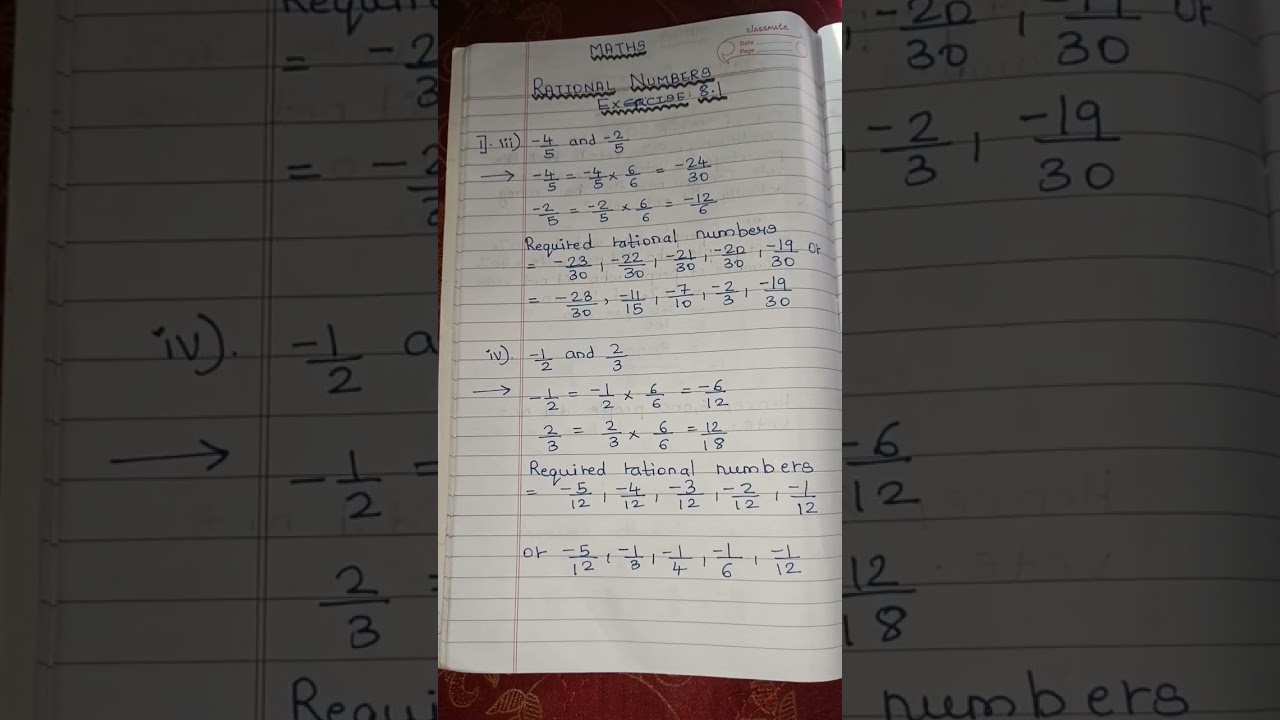 classmate
Date
Page
MATHS
RATIONAL NUMBERS
EXERCISE: 8.1
1]. iii) -4/5 and -2/5
→ -4/5 = -4/5 × 6/6 = -24/30
-2/5 = -2/5 × 6/6 = -12/6
Required rational numbers
= -23/30, -22/30, -21/30, -20/30, -19/30 or
= -23/30, -11/15, -7/10, -2/3, -19/30
iv). -1/2 and 2/3
→ -1/2 = -1/2 × 6/6 = -6/12
2/3 = 2/3 × 6/6 = 12/18
Required rational numbers
= -5/12, -4/12, -3/12, -2/12, -1/12
or -5/12, -1/3, -1/4, -1/6, -1/12